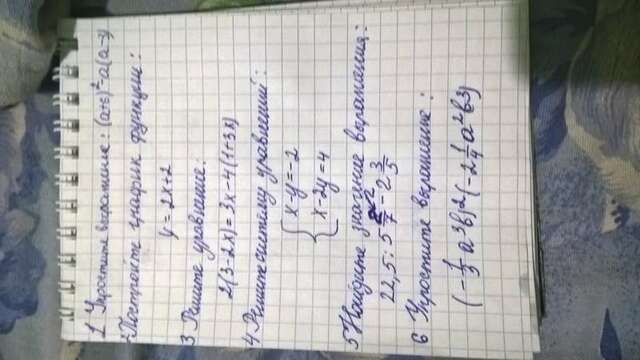 1 Упростите выражение: (a+6)²-a(a-
2 Постройте график функции:
y = 2x+2
3 Решите уравнение:
2(3-2x)=3x-4(1+3x)
4 Решите систему уравнений:
{x-y=-2
{x-2y=4
5 Найдите значение выражения:
22,5 : 5 2/7 - 2 3/5
6 Упростите выражение:
(-1/3 a³b)²(-2 1/4 a²b3)